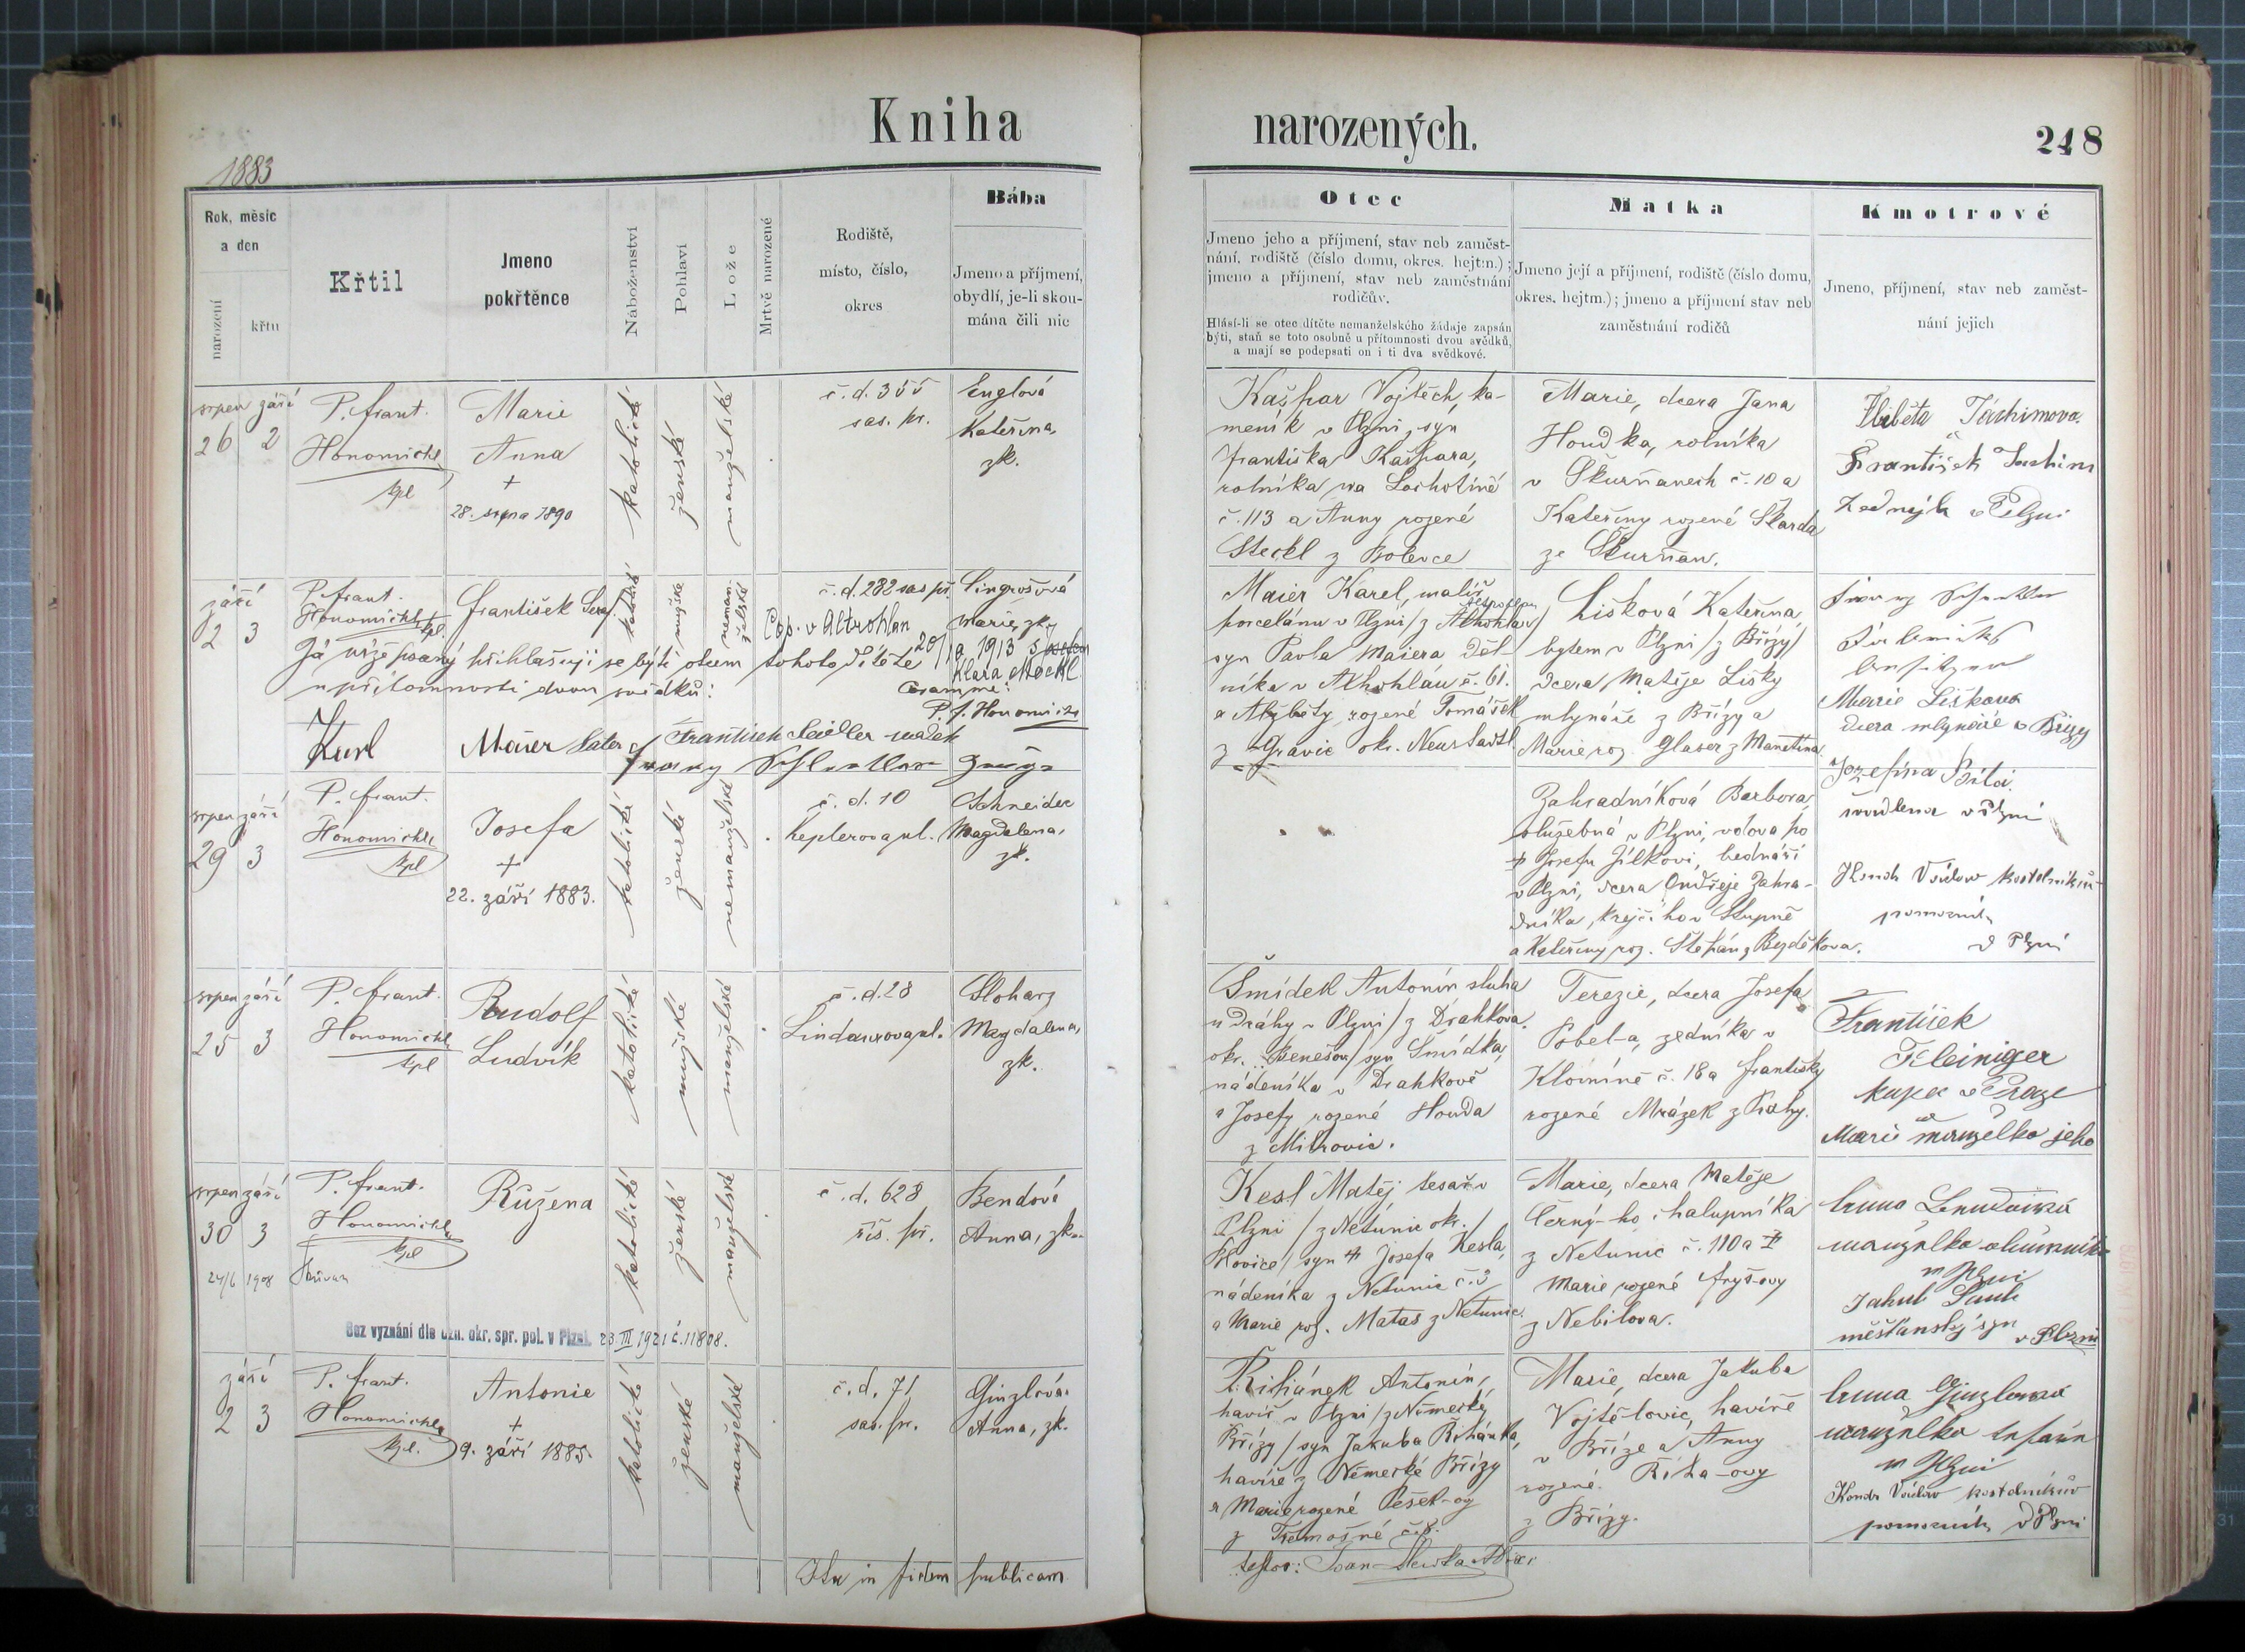 Kniha
narozených.
248
1883
Rok, měsíc
a den
narození
křtu
Křtil
Jmeno
pokřtěnce
Náboženství
Pohlaví
Lože
Mrtvě narozené
Rodiště,
místo, číslo,
okres
Bába
Jmeno a příjmení,
obydlí, je-li skou-
mána čili nic
Otec
Jmeno jeho a příjmení, stav neb zaměst-
nání, rodiště (číslo domu, okres. hejtm.);
jmeno a příjmení, stav neb zaměstnání
rodičův.
Hlásí-li se otec dítěte nemanželského žádaje zapsán
býti, staň se toto osobně u přítomnosti dvou svědků,
a mají se podepsati on i ti dva svědkové.
Matka
Jmeno její a příjmení, rodiště (číslo domu,
okres. hejtm.); jmeno a příjmení stav neb
zaměstnání rodičů
Kmotrové
Jmeno, příjmení, stav neb zaměst-
nání jejich
srpen září
26 2
P. frant.
Honomichl
kpl
Marie
Anna
+
28. srpna 1890
katolické
ženské
manželské
č. d. 355
sas. př.
Englová
Kateřina,
zk.
Kašpar Vojtěch, ka-
meník v Plzni, syn
Františka Kašpara,
rolníka na Lochotíně
č. 113 a Anny rozené
Steckl z Bolevce
Marie, dcera Jana
Houdka, rolníka
v Škurňanech č. 10 a
Kateřiny rozené Skarda
ze Škurňan.
Alžběta
František
Zedník v Plzni
září
2 3
P. frant.
Honomichl
kpl.
František Seraf.
katolické
mužské
neman-
želské
č. d. 282 sas př.
Cop. v Altrohlau
20/ 1913 s
Klara Möckl
Singrošová
Marie, zk.
Já níže psaný přihlašuji se býti otcem tohoto dítěte
u přítomnosti dvou svědků:
Coram me:
P. f. Honomichl
Karl Maier Vater
František Seidler
Franz
Maier Karel, malíř
porcelánu v Plzni / z Altrohlau /
syn Pavla Maiera děl-
níka v Altrohlau č. 61.
a Alžběty rozené Tomášek
z okr. Neustadtl
Lišková Kateřina,
bytem v Plzni / z Břízy /
dcera Matěje Lišky
mlynáře z Břízy a
Marie roz. Glaser z Manetína
Franz
Marie Liškova
dcera mlynáře v Břízy
srpen září
29 3
P. frant.
Honomichl
kpl
Josefa
+
22. září 1883.
katolické
ženské
nemanželské
č. d. 10
Keplerova ul.
Schneider
Magdalena,
zk.
Zahradníková Barbora,
služebná v Plzni, vdova po
+ Josefu Jílkovi, bednáři
v Plzni, dcera Ondřeje Zahra-
dníka, krejčího v Stupně
a Kateřiny roz. Štěpán z Bezděkova.
Josefina
švadlena v Plzni
Václav kostelníkův
pomocník
v Plzni
srpen září
25 3
P. frant.
Honomichl
kpl
Rudolf
Ludvík
katolické
mužské
manželské
č. d. 28
Lindaurova ul.
Stoharz
Magdalena,
zk.
Šmídek Antonín sluha
u dráhy v Plzni / z Drahkova
okr. Benešov / syn Šmídka,
nádeníka v Drahkově
a Josefy rozené Houda
z Mitrovic.
Terezie, dcera Josefa
zedníka v
Klomíně č. 18 a Františky
rozené Mrázek z Prahy.
František
Kleiniger
kupec v Praze
a
Marie manželka jeho
srpen září
30 3
P. frant.
Honomichl
kpl
24/6 1908
Růžena
katolické
ženské
manželské
č. d. 628
říš. př.
Bendová
Anna, zk.
Bez vyznání dle ozn. okr. spr. pol. v Plzni. 23 III 1921 č. 11808.
Kesl Matěj tesař v
Plzni / z Netunic okr.
Plovice / syn + Josefa Kesla,
nádeníka z Netunic č. 3
a Marie roz. Matas z Netunic.
Marie, dcera Matěje
Černý-ho, chalupníka
z Netunic č. 110 a +
Marie rozené Fryš-ovy
z Nebilova.
Anna
manželka
v Plzni
Jakub
měšťanský syn v Plzni
září
2 3
P. frant.
Honomichl
kpl.
Antonie
+
9. září 1885.
katolické
ženské
manželské
č. d. 71
sas. př.
Ginzlová
Anna, zk.
Řihánek Antonín,
havíř v Plzni / z Německé
Břízy / syn Jakuba Řihánka,
havíře z Německé Břízy
a Marie rozené Pešek-ovy
z Třemošné č. 8.
Marie, dcera Jakuba
Vojtělovic, havíře
v Bříze a Anny
rozené Říha-ovy
z Břízy.
Anna Ginzlová
manželka
v Plzni
Václav kostelníkův
pomocník v Plzni
Ita in fidem publicam
testor: Joan